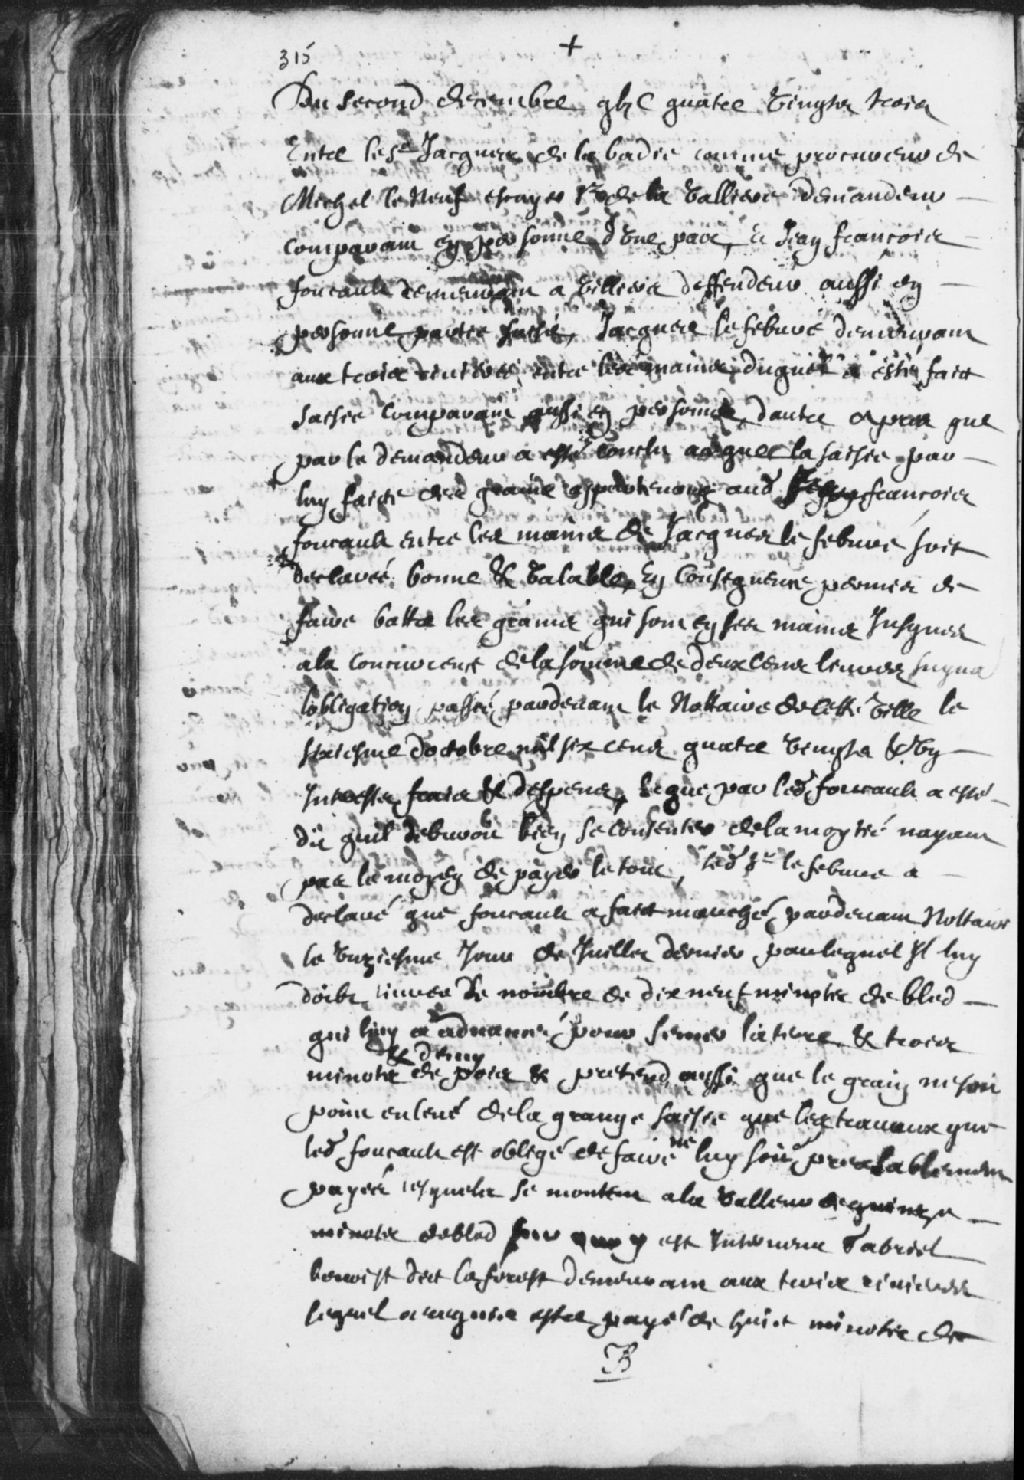 315
+
Du second decembre gbjC quatre Vingts trois
Entre le Sr Jacques de la badie comme procureur de
Michel le Neuf escuyer Sr de la Valliere demandeur
comparant en personne d'Une part, & Jean francois
foucault demeurant a Villiers deffendeur aussi en
personne partie saisie, Jacques le febuvre demeurant
aux trois rivieres entre les mains duquel a esté fait
saisie Comparant aussi en personne d'autre a pars que
par le demandeur a esté Conclu a ce que la saisie par
luy faite des grains appartenons aud francois
foucault entre les mains de Jacques le febuvre soit
declareé bonne & Valable, En Consequence permis de
faire battre les grains qui sont en ses mains Jusques
a la concurrence de la somme de deux Cens livres suyvt
l'obligation passeé pardevant le Nottaire de Cette Ville le
sixiesme d'octobre mil six cens quatre Vingts & Un
Interests frais & despens, A que par led foucault a esté
dit quil debvroit bien se contenter de la moytié nayant
pas le moyen de payer le tout, led Sr le febuvre a
declaré que foucault a fait marché pardevant Nottaire
le Unziesme Jour de Juillet dernier par lequel Il luy
doibt livrer le nombre de dix neuf minots de bled
qui luy a advancé pour semer la terre & trois
& demy
minots de pois & pretend aussi que le grain ne soit
point enlevé de la grange saisie que les travaux que
led foucault est obligé de faire ne luy soit prealablement
payés lesquels se montent a la Valleur de quinze
minots de bled sur quoy est Intervenu Gabriel
benoist dit laforest demeurant aux trois rivieres
lequel a requis estre payé de huit minots de
B